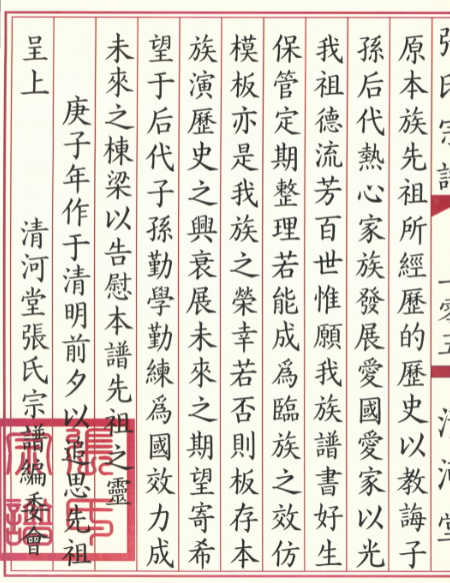 張氏宗譜 一零五 清河堂
原本族先祖所經歷的歷史以教誨子
孫后代熱心家族發展愛國愛家以光
我祖德流芳百世惟願我族譜書好生
保管定期整理若能成爲臨族之效仿
模板亦是我族之榮幸若否則板存本
族演歷史之興衰展未來之期望寄希
望于后代子孫勤學勤練爲國效力成
未來之棟梁以告慰本譜先祖之靈
庚子年作于清明前夕以追思先祖
呈上 清河堂張氏宗譜編委會
張氏
宗譜